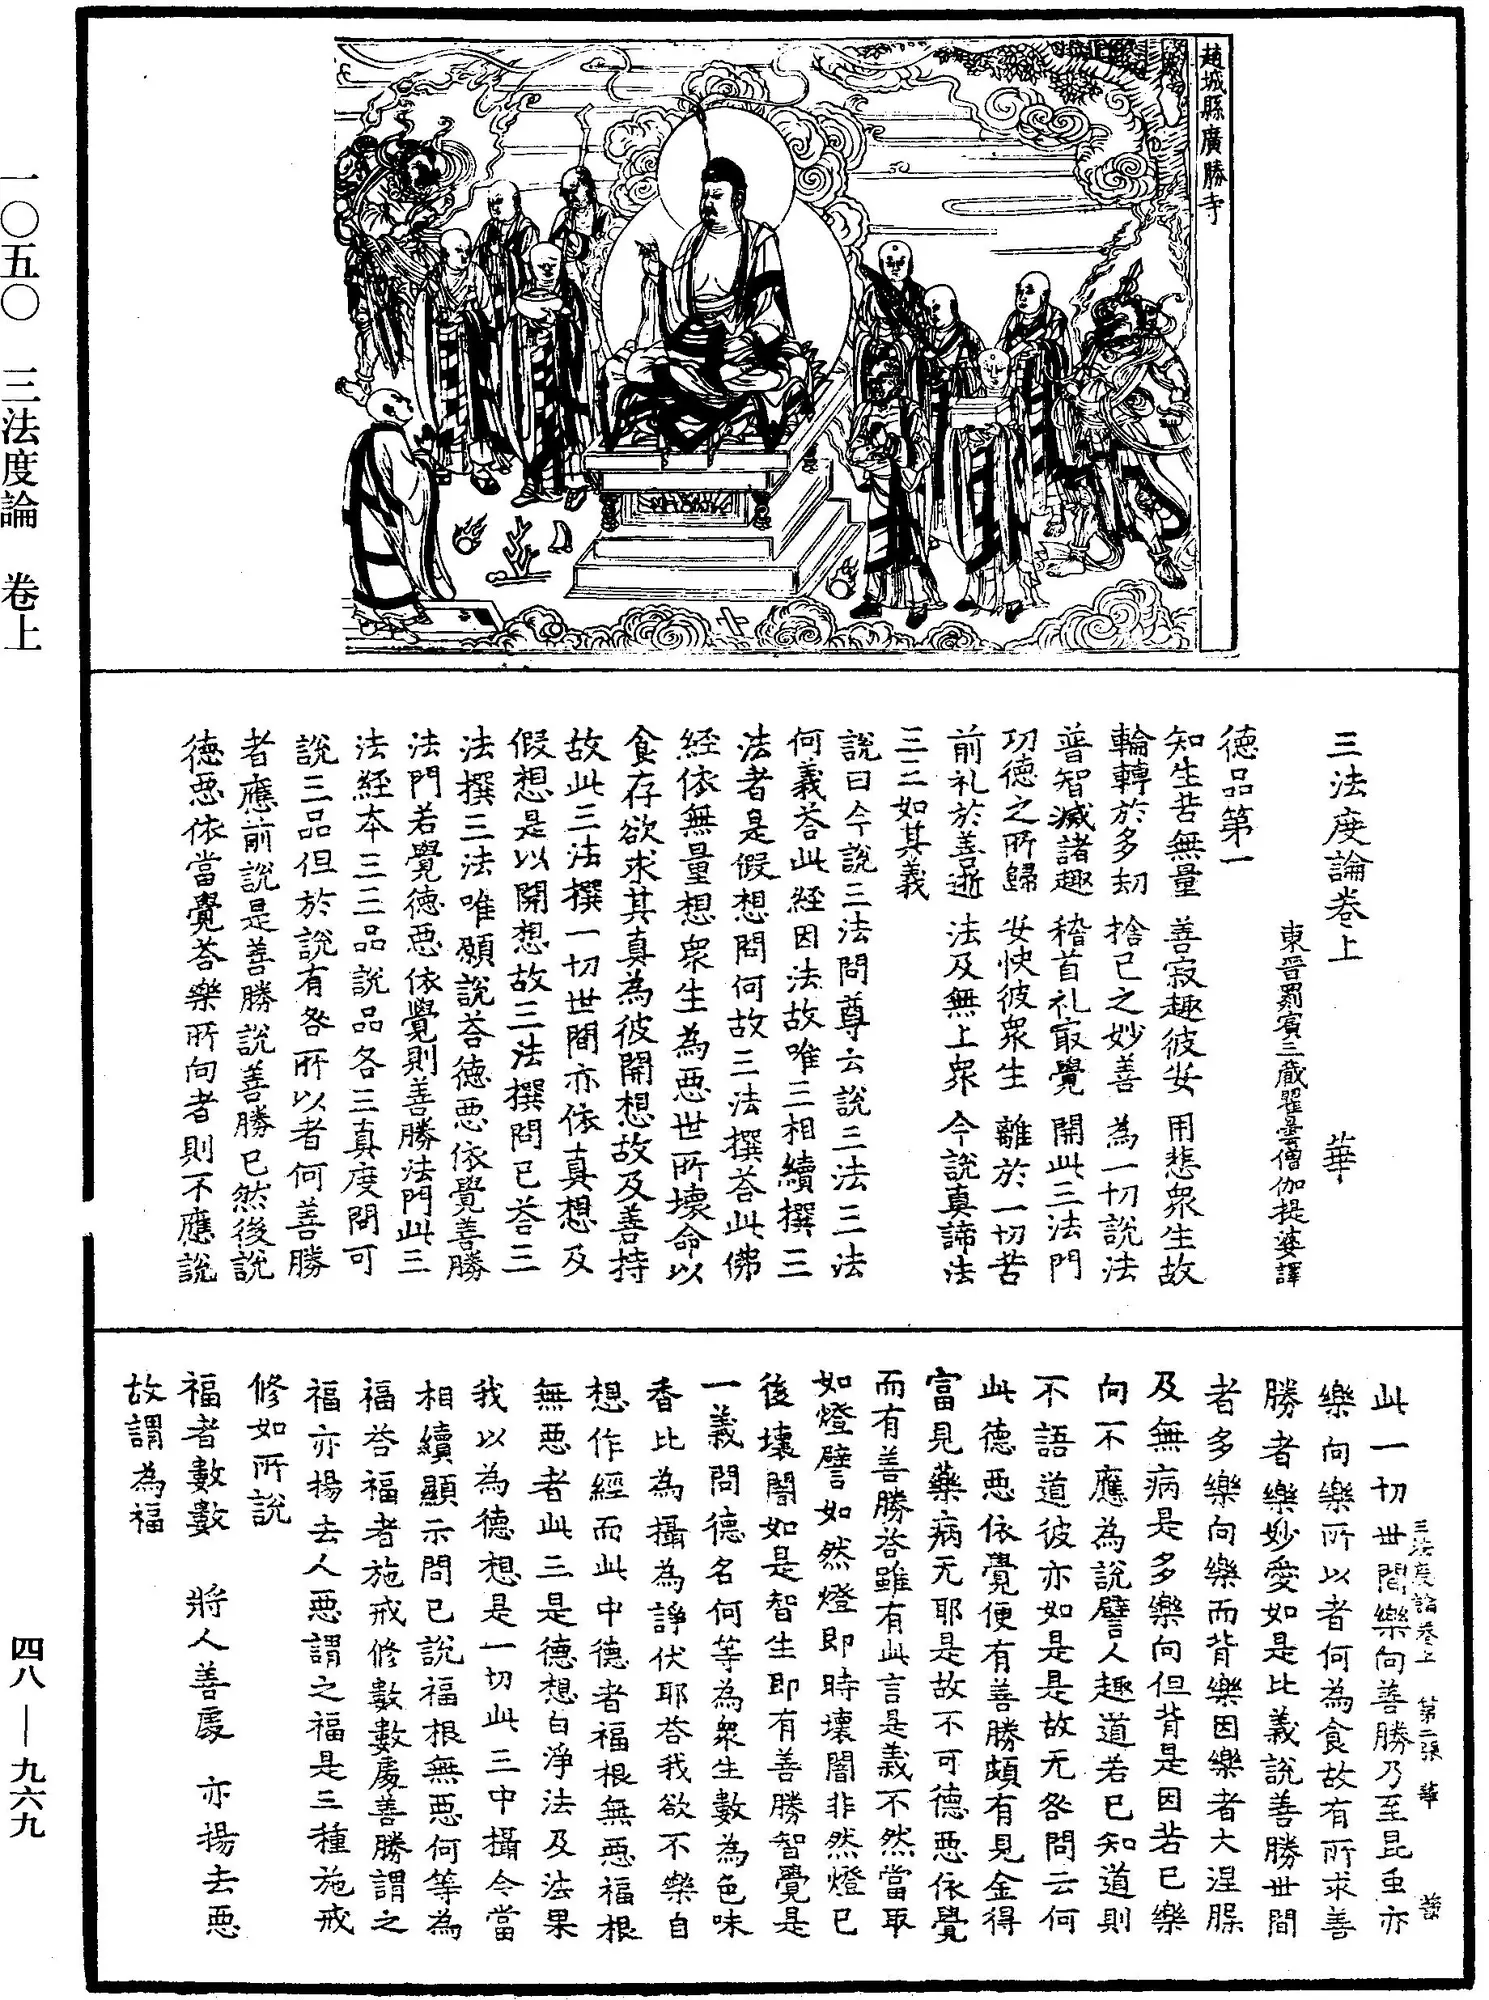 一〇五〇　三法度論　卷上
趙城縣廣勝寺
三法度論卷上　華
東晉罽賓三藏瞿曇僧伽提婆譯
德品第一
知生苦無量　善寂趣彼安　用悲眾生故
輪轉於多劫　捨己之妙善　為一切說法
普智滅諸趣　稽首礼冣覺　開此三法門
功德之所歸　安快彼眾生　離於一切苦
前礼於善逝　法及無上眾　今說真諦法
三三如其義
說曰今說三法問尊云說三法三法
何義荅此經因法故唯三相續撰三
法者是假想問何故三法撰荅此佛
經依無量想眾生為惡世所壞命以
食存欲求其真為彼開想故及善持
故此三法撰一切世間亦依真想及
假想是以開想故三法撰問已荅三
法撰三法唯願說荅德惡依覺善勝
法門若覺德惡依覺則善勝法門此三
法經本三三品說品各三真度問可
說三品但於說有咎所以者何善勝
者應前說是善勝說善勝已然後說
德惡依當覺荅樂所向者則不應說
三法度論卷上　第二張　華
此一切世間樂向善勝乃至昆虫亦
樂向樂所以者何為食故有所求善
勝者樂妙愛如是比義說善勝世間
者多樂向樂而背樂因樂者大涅槃
及無病是多樂向但背是因若已樂
向不應為說譬人趣道若已知道則
不語道彼亦如是是故无咎問云何
此德惡依覺便有善勝頗有見金得
富見藥病无耶是故不可德惡依覺
而有善勝荅雖有此言是義不然當取
如燈譬如然燈即時壞闇非然燈已
後壞闇如是智生即有善勝智覺是
一義問德名何等為眾生數為色味
香比為攝為諍伏耶荅我欲不樂自
想作經而此中德者福根無惡福根
無惡者此三是德想白淨法及法果
我以為德想是一切此三中攝今當
相續顯示問已說福根無惡何等為
福荅福者施戒修數數處善勝謂之
福亦揚去人惡謂之福是三種施戒
修如所說
福者數數　將人善處　亦揚去惡
故謂為福
四八—九六九